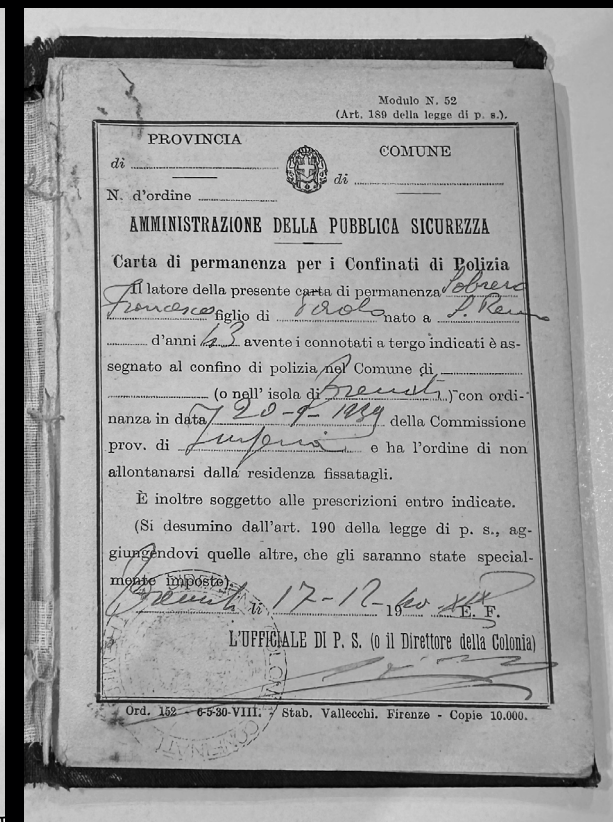 Modulo N. 52
(Art. 189 della legge di p. s.).
PROVINCIA
di
COMUNE
di
N. d'ordine
AMMINISTRAZIONE DELLA PUBBLICA SICUREZZA
Carta di permanenza per i Confinati di Polizia
Il latore della presente carta di permanenza Sobrero
Francesco figlio di Paolo nato a S. Remo
d'anni 43 avente i connotati a tergo indicati è as-
segnato al confino di polizia nel Comune di
(o nell' isola di Tremiti ) con ordi-
nanza in data 20-9-1939 della Commissione
prov. di Imperia e ha l'ordine di non
allontanarsi dalla residenza fissatagli.
È inoltre soggetto alle prescrizioni entro indicate.
(Si desumino dall'art. 190 della legge di p. s., ag-
giungendovi quelle altre, che gli saranno state special-
mente imposte).
Tremiti li 17-12-1940 XIX E. F.
L'UFFICIALE DI P. S. (o il Direttore della Colonia)
Ord. 152 - 6-5-30-VIII. - Stab. Vallecchi. Firenze - Copie 10.000.
CONFINATI